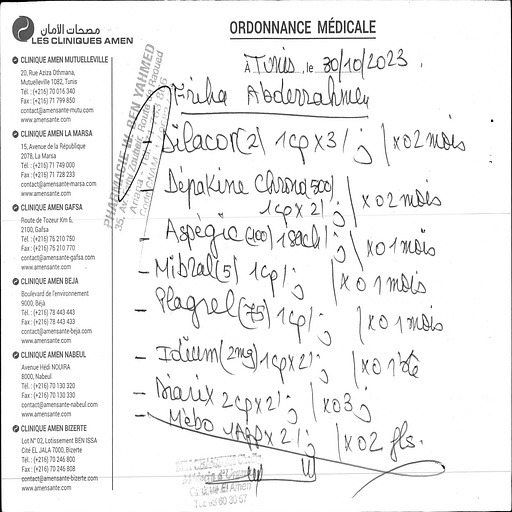 مصحات الامان
LES CLINIQUES AMEN
ORDONNANCE MÉDICALE
À Tunis, le 30/10/2023.
Friha Abderrahmen
CLINIQUE AMEN MUTUELLEVILLE
20, Rue Aziza Othmana,
Mutuelleville 1082, Tunis
Tél. : (+216) 70 016 340
Fax : (+216) 71 799 850
contact@amensante-mutu.com
www.amensante.com
CLINIQUE AMEN LA MARSA
15, Avenue de la République
2078, La Marsa
Tél. : (+216) 71 749 000
Fax : (+216) 71 728 233
contact@amensante-marsa.com
www.amensante.com
CLINIQUE AMEN GAFSA
Route de Tozeur Km 6,
2100, Gafsa
Tél. : (+216) 76 210 750
Fax : (+216) 76 210 770
contact@amensante-gafsa.com
www.amensante.com
CLINIQUE AMEN BEJA
Boulevard de l'environnement
9000, Béja
Tél. : (+216) 78 443 443
Fax : (+216) 78 443 433
contact@amensante-beja.com
www.amensante.com
CLINIQUE AMEN NABEUL
Avenue Hédi NOUIRA
8000, Nabeul
Tél. : (+216) 70 130 320
Fax : (+216) 70 130 330
contact@amensante-nabeul.com
www.amensante.com
CLINIQUE AMEN BIZERTE
Lot N° 02, Lotissement BEN ISSA
Cité EL JALA 7000, Bizerte
Tél. : (+216) 70 246 800
Fax : (+216) 70 246 808
contact@amensante-bizerte.com
www.amensante.com
- Dilacor (2) 1cp x 3/j | x 02 mois
- Dépakine Chrono 500
1cp x 2/j | x 02 mois
- Aspégic (100) 1 sach/j | x 01 mois
- Mibral (5) 1cp/j | x 01 mois
- Plagrel (75) 1cp/j | x 01 mois
- Idium (2mg) 1cp x 2/j | x 01 bte
- Diarix 2cp x 2/j | x 03j
- Mebo 1App x 2/j | x 02 fls.
PHARMACIE W. BEN YAHMED
Clinique El Amen